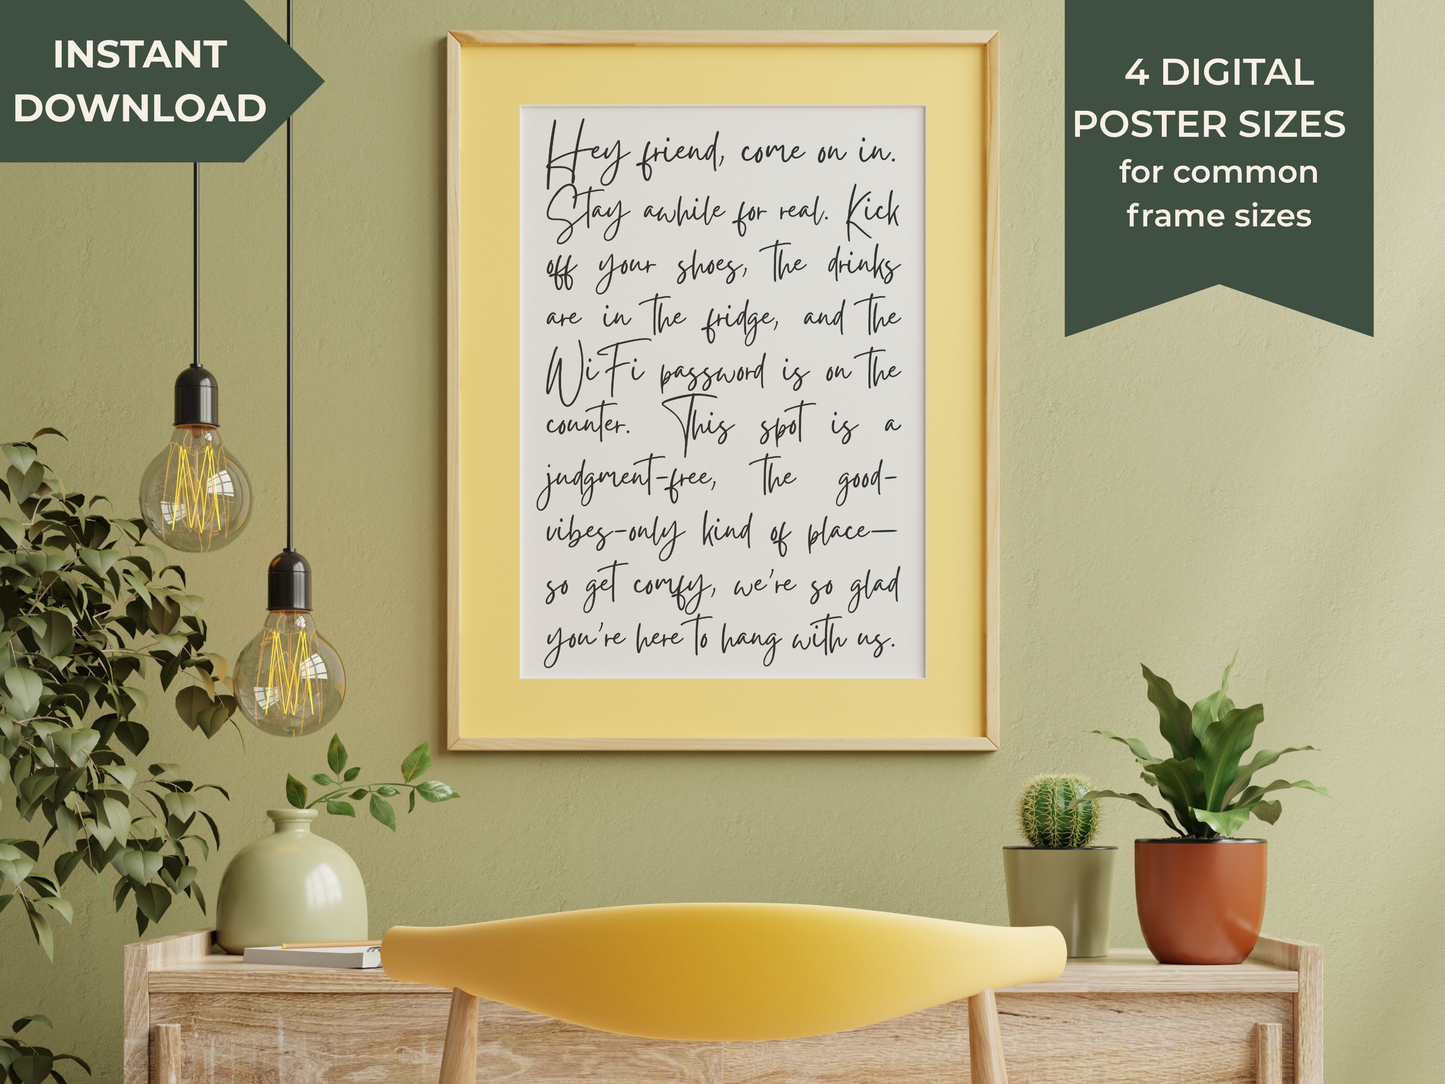 INSTANT
DOWNLOAD
Hey friend, come on in.
Stay awhile for real. Kick
off your shoes, the drinks
are in the fridge, and the
WiFi password is on the
counter. This spot is a
judgment-free, the good-
vibes-only kind of place—
so get comfy, we're so glad
you're here to hang with us.
4 DIGITAL
POSTER SIZES
for common
frame sizes